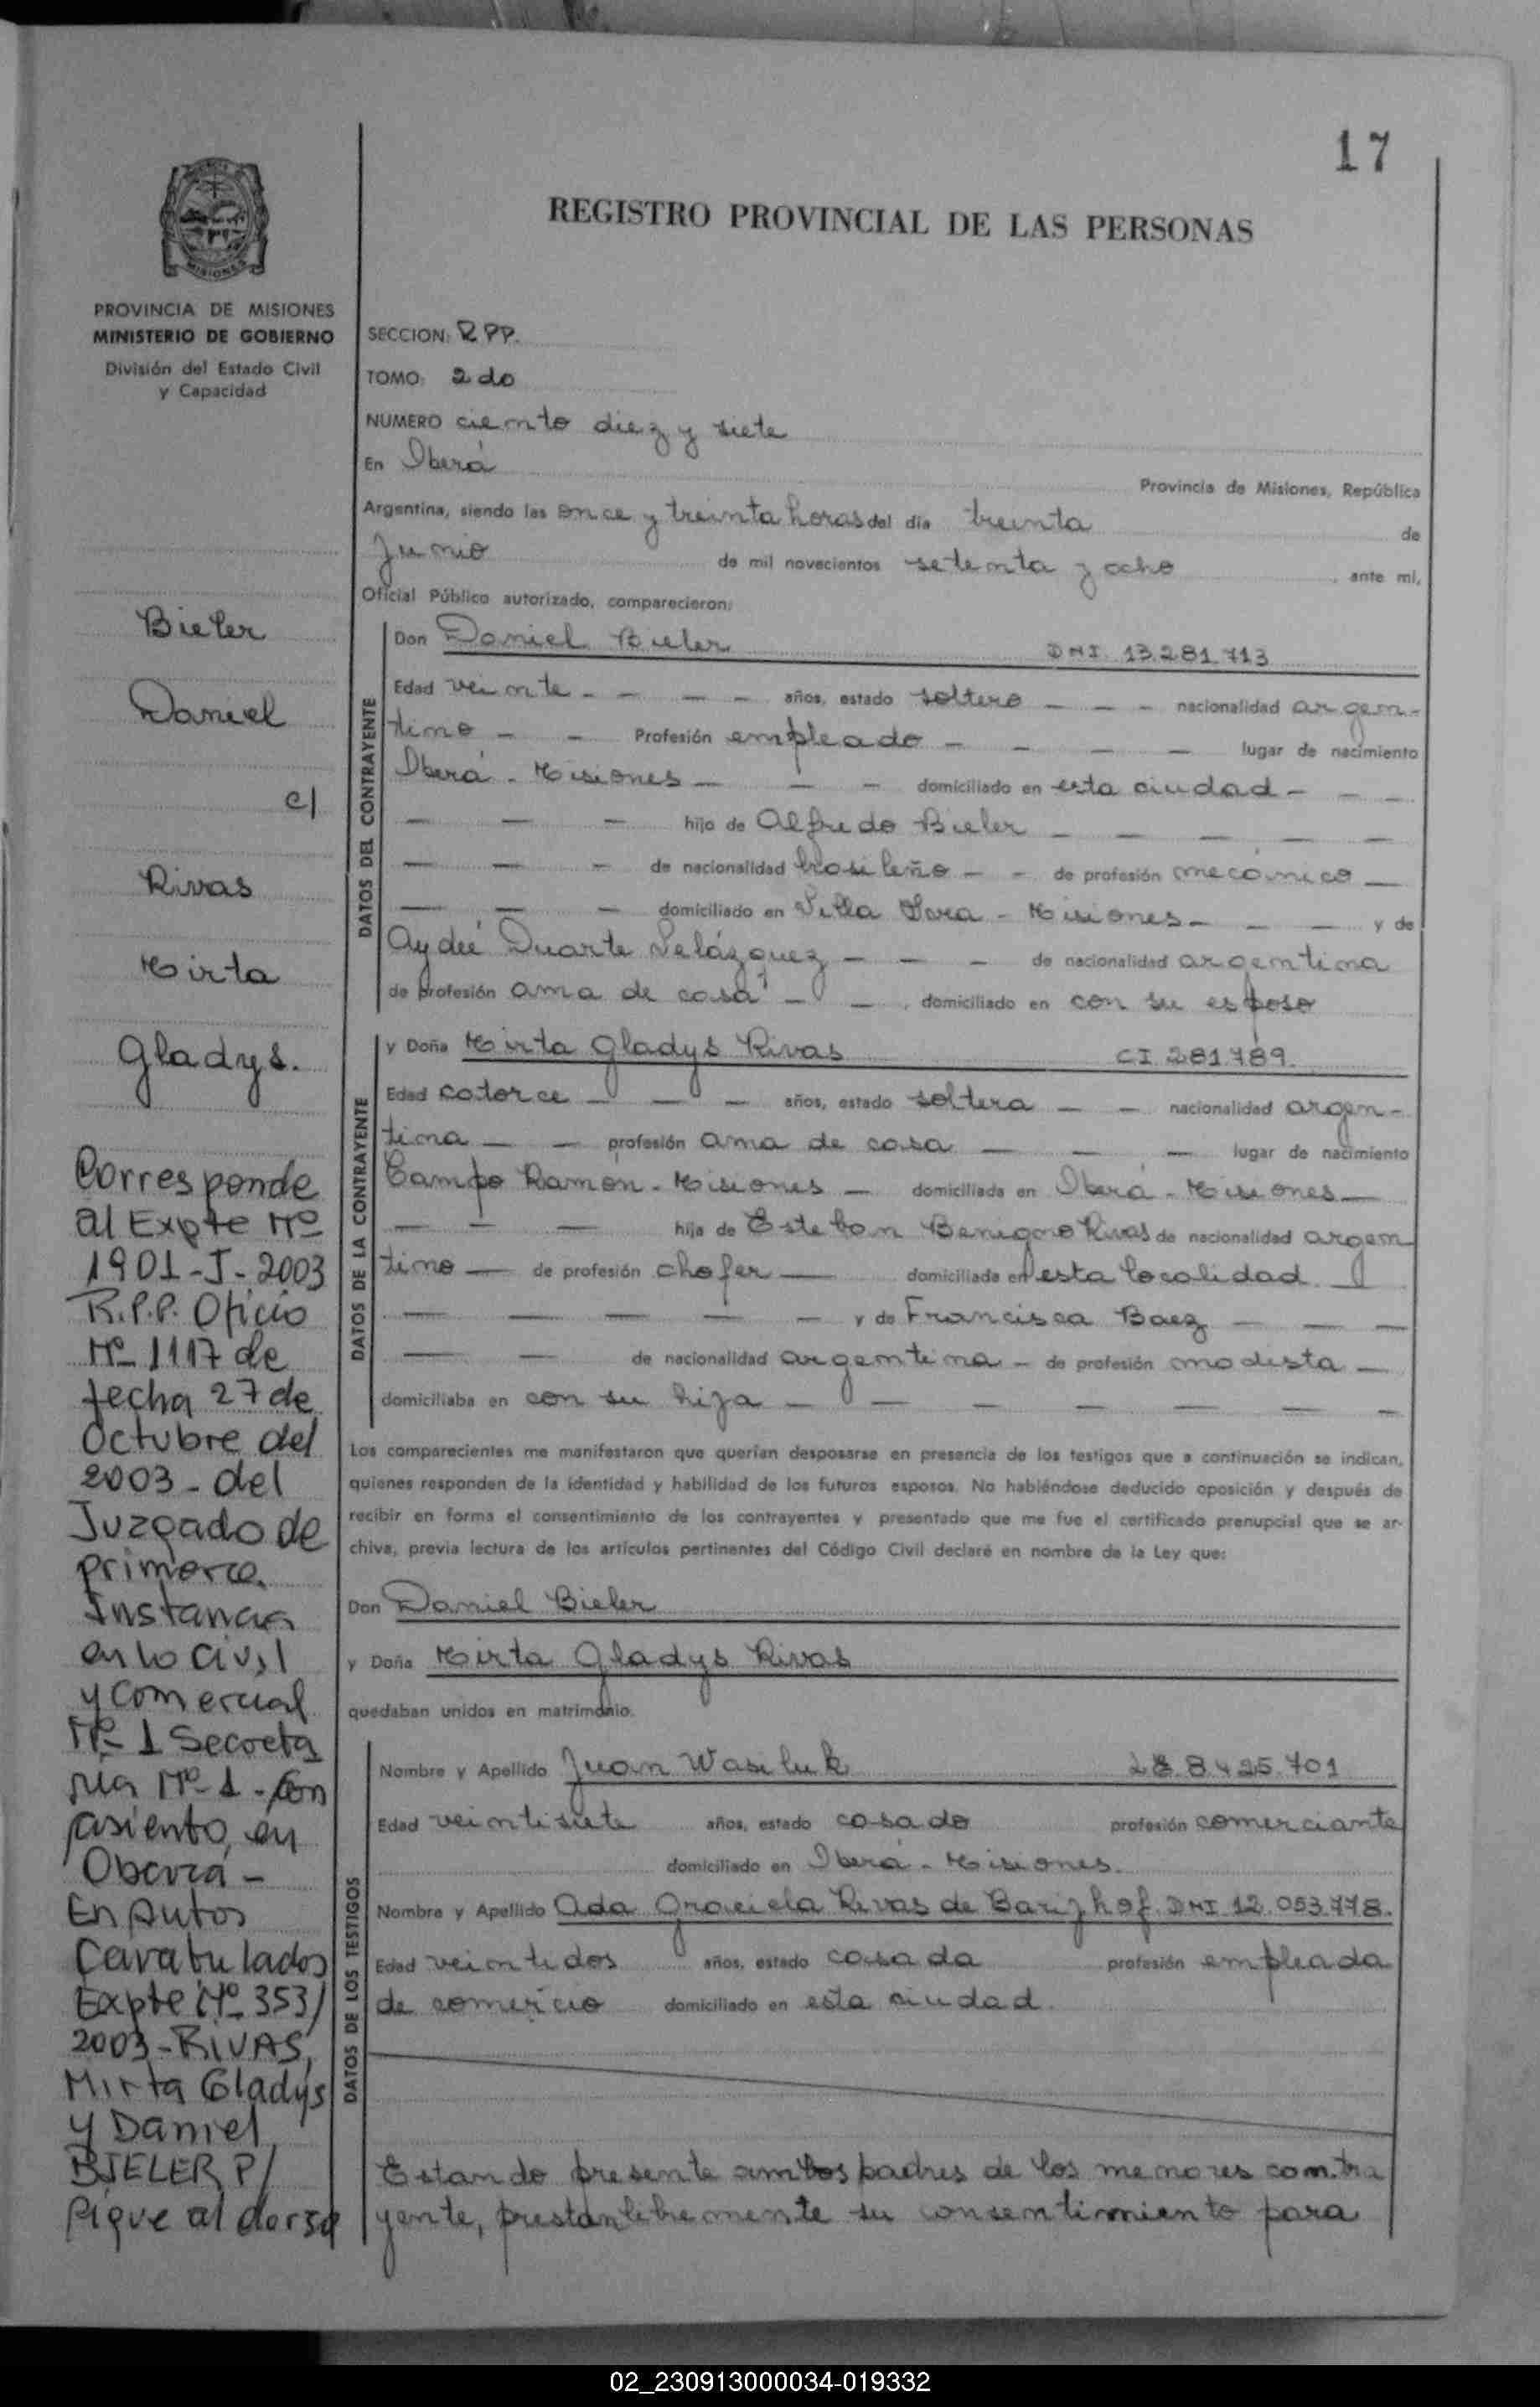 17
REGISTRO PROVINCIAL DE LAS PERSONAS
MISIONES
PROVINCIA DE MISIONES
MINISTERIO DE GOBIERNO
División del Estado Civil
y Capacidad
Bieler
Daniel
c/
Rivas
Mirta
Gladys.
Corresponde
al Expte Nº
1901-J-2003
R.P.P. Oficio
Nº 1117 de
fecha 27 de
Octubre del
2003 - del
Juzgado de
primera
Instancia
en lo Civil
y Comercial
Nº 1 Secreta
ria Nº 1 - Con
asiento en
Oberá -
En Autos
Caratulados
Expte Nº 353/
2003 - RIVAS,
Mirta Gladys
y Daniel
BIELER P/
Sigue al dorso
SECCION: RPP.
TOMO: 2do
NUMERO ciento diez y siete
En Oberá
Provincia de Misiones, República
Argentina, siendo las once y treinta horas del día treinta de
Junio de mil novecientos setenta y ocho, ante mí,
Oficial Público autorizado, comparecieron:
DATOS DEL CONTRAYENTE
Don Daniel Bieler DNI. 13.281.713
Edad veinte - - - - años, estado soltero - - - nacionalidad argen-
tino - - Profesión empleado - - - - lugar de nacimiento
Oberá - Misiones - - - domiciliado en esta ciudad - - -
- - - hijo de Alfredo Bieler - - - - -
- - - de nacionalidad brasileño - - de profesión mecánico -
- - - domiciliado en Villa Sara - Misiones - - - y de
Aydeé Duarte Velázquez - - - de nacionalidad argentina
de profesión ama de casa - - , domiciliado en con su esposo
DATOS DE LA CONTRAYENTE
y Doña Mirta Gladys Rivas CI. 281.789.
Edad catorce - - - años, estado soltera - - nacionalidad argen-
tina - - profesión ama de casa - - - lugar de nacimiento
Campo Ramón - Misiones - domiciliada en Oberá - Misiones -
- - - hija de Esteban Benigno Rivas de nacionalidad argen
tino - de profesión chofer - domiciliada en esta localidad
- - - - - y de Francisca Baez - - -
- - de nacionalidad argentina - de profesión modista -
domiciliaba en con su hija - - - - - - -
Los comparecientes me manifestaron que querían desposarse en presencia de los testigos que a continuación se indican,
quienes responden de la identidad y habilidad de los futuros esposos. No habiéndose deducido oposición y después de
recibir en forma el consentimiento de los contrayentes y presentado que me fue el certificado prenupcial que se ar-
chiva, previa lectura de los artículos pertinentes del Código Civil declaré en nombre de la Ley que:
Don Daniel Bieler
y Doña Mirta Gladys Rivas
quedaban unidos en matrimonio.
DATOS DE LOS TESTIGOS
Nombre y Apellido Juan Wasiluk 8.425.701
Edad veintisiete años, estado casado profesión comerciante
domiciliado en Oberá - Misiones.
Nombre y Apellido Ada Graciela Rivas de Barizhof. DNI 12.053.778.
Edad veintidos años, estado casada profesión empleada
de comercio domiciliado en esta ciudad.
Estando presente ambos padres de los menores contra
yente, prestan libremente su consentimiento para
02_230913000034-019332